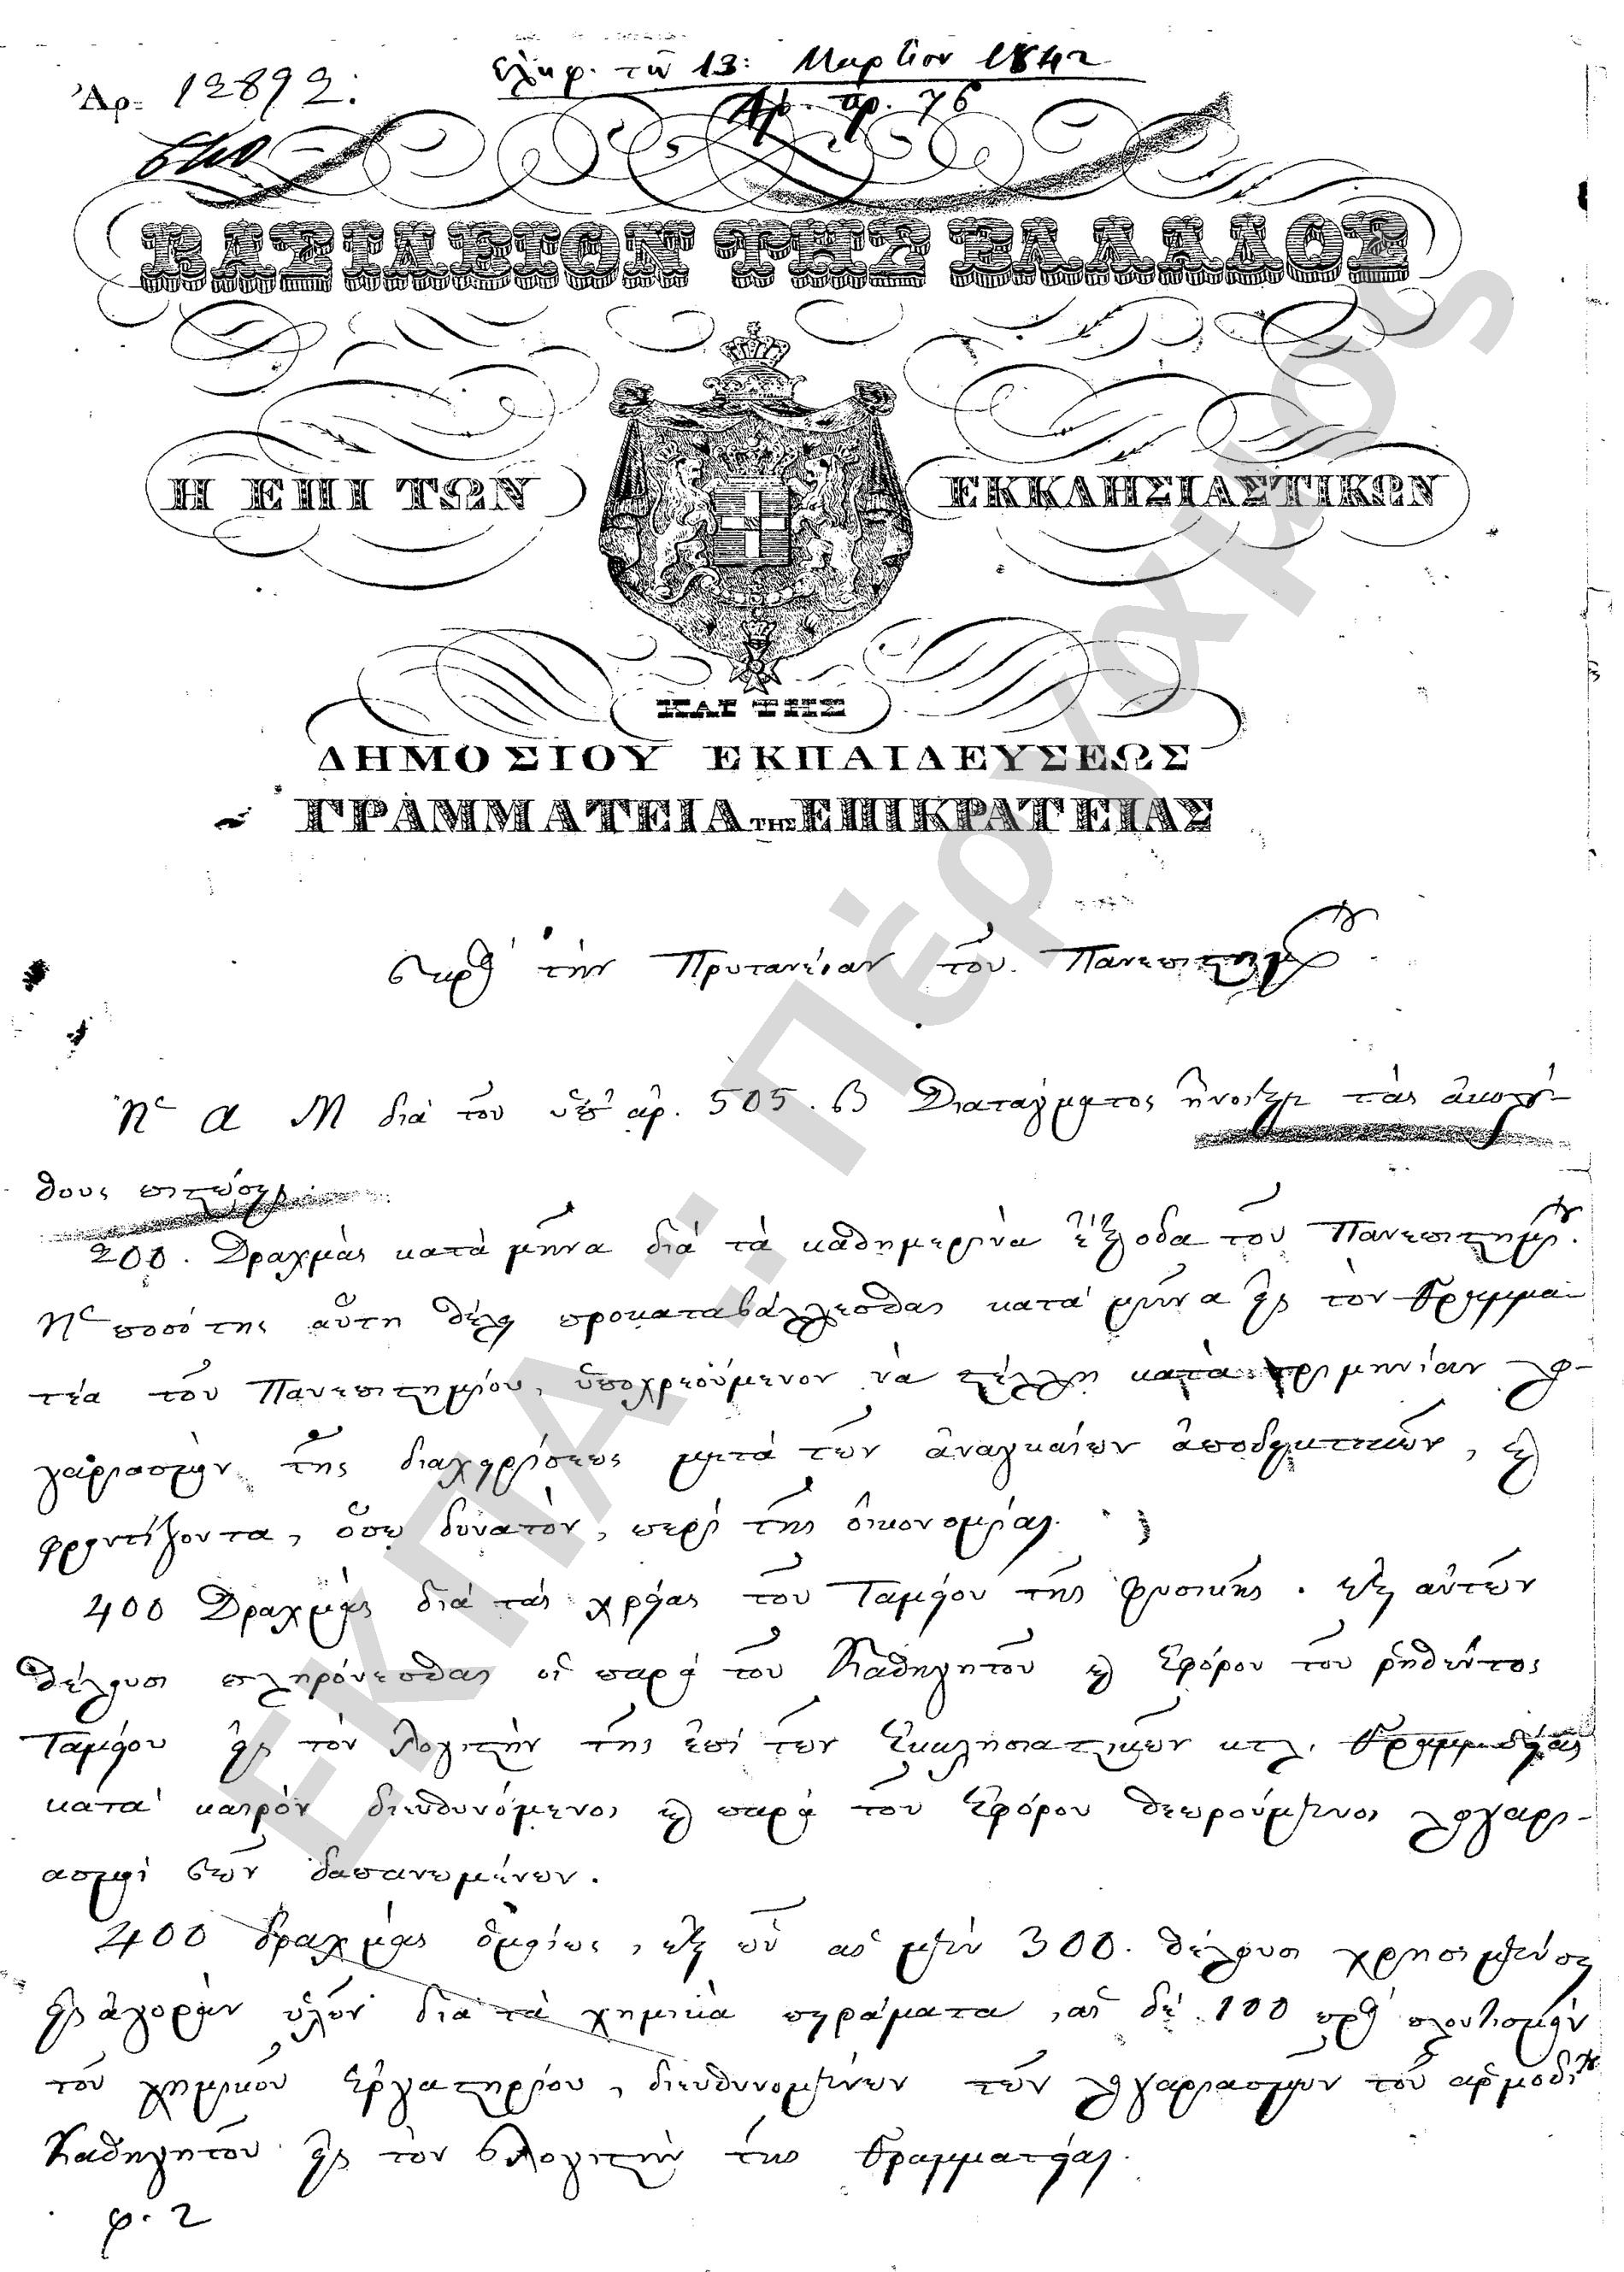 Ἀρ: 12892.
Ἐλήφ. τῇ 13: Μαρτίου 1842
Ἀρ. πρ. 76
ΒΑΣΙΛΕΙΟΝ ΤΗΣ ΕΛΛΑΔΟΣ
Η ΕΠΙ ΤΩΝ ΕΚΚΛΗΣΙΑΣΤΙΚΩΝ
ΚΑΙ ΤΗΣ
ΔΗΜΟΣΙΟΥ ΕΚΠΑΙΔΕΥΣΕΩΣ
ΓΡΑΜΜΑΤΕΙΑ ΤΗΣ ΕΠΙΚΡΑΤΕΙΑΣ
Πρὸς τὴν Πρυτανείαν τοῦ Πανεπιστημίου.
Ἡ Α Μ διὰ τοῦ ὑπ' ἀρ. 505. Διατάγματος ἤνοιξεν τὰς ἀκολού-
θους πιστώσεις.
200. Δραχμὰς κατὰ μῆνα διὰ τὰ καθημερινὰ ἔξοδα τοῦ Πανεπιστημίου.
Ἡ ποσότης αὕτη θέλει προκαταβάλλεσθαι κατὰ μῆνα εἰς τὸν Γραμμα-
τέα τοῦ Πανεπιστημίου, ὑποχρεούμενον νὰ στέλλῃ κατὰ τριμηνίαν λο-
γαριασμὸν τῆς διαχειρίσεως μετὰ τῶν ἀναγκαίων ἀποδεικτικῶν, καὶ
φροντίζοντα, ὅσον δυνατὸν, περὶ τῆς οἰκονομίας.
400 Δραχμὰς διὰ τὰς χρείας τοῦ Ταμείου τῆς φυσικῆς. ἐξ αὐτῶν
θέλουσι πληρόνεσθαι οἱ παρὰ τοῦ Καθηγητοῦ καὶ Ἐφόρου τοῦ ῥηθέντος
Ταμείου εἰς τὸν Λογιστὴν τῆς ἐπὶ τῶν Ἐκκλησιαστικῶν κτλ. Γραμματείας
κατὰ καιρὸν διευθυνόμενοι καὶ παρὰ τοῦ Ἐφόρου θεωρούμενοι λογαρι-
ασμοὶ τῶν δαπανωμένων.
400 δραχμὰς ὁμοίως, ἐξ ὧν αἱ μὲν 300. θέλουσι χρησιμεύσει
εἰς ἀγορὰν ὑλῶν διὰ τὰ χημικὰ πειράματα, αἱ δὲ 100 πρὸς πλουτισμὸν
τοῦ χημικοῦ ἐργαστηρίου, διευθυνομένων τῶν λογαριασμῶν τοῦ ἁρμοδίου
Καθηγητοῦ εἰς τὸν Λογιστὴν τῆς Γραμματείας.
φ. 2
ΕΚΠΑ :: Πέργαμος